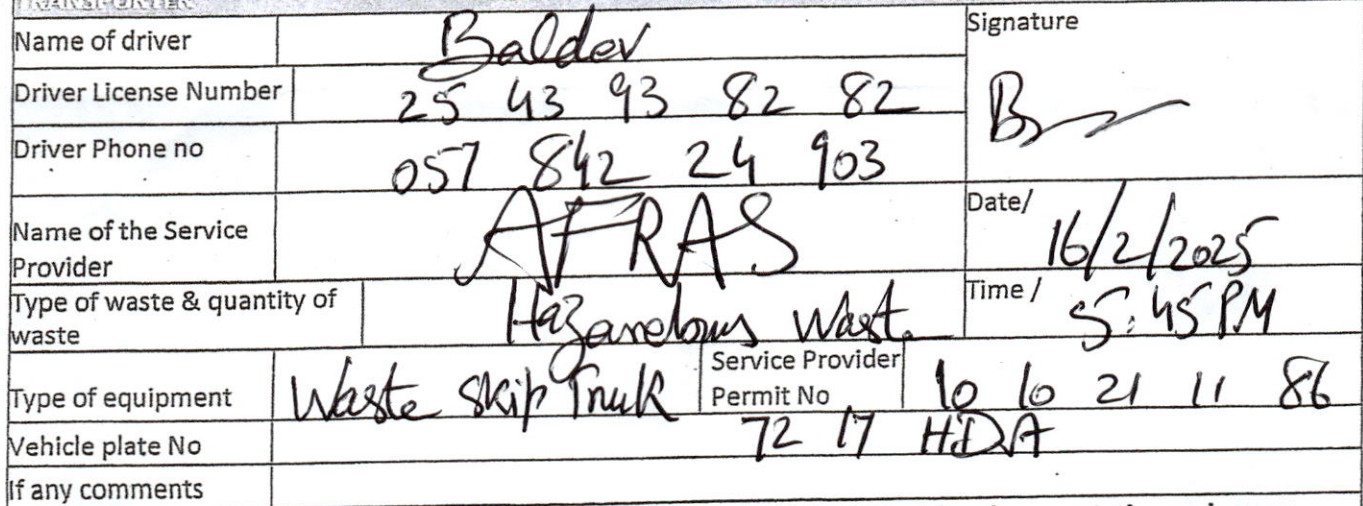 TRANSPORTER
Name of driver Baldev
Signature
Driver License Number 25 43 93 82 82
Driver Phone no 057 842 24 903
Name of the Service Provider AFRAS
Date/ 16/2/2025
Type of waste & quantity of waste Hazardous Waste
Time / 5:45 PM
Type of equipment Waste Skip Truck
Service Provider Permit No 10 10 21 11 86
Vehicle plate No 72 17 HDA
If any comments